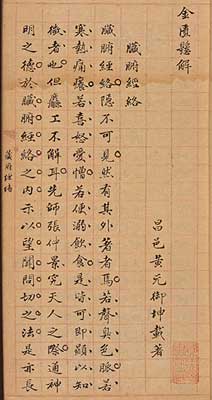 金匱懸解
昌邑黃元御坤載著
臟腑經絡
臟腑經絡隱不可見然有其外著者焉若聲臭色脈若
寒熱痛癢若喜怒愛憎若便溺飲食是皆可即顯以知
微者也但麤工不解耳先師張仲景究天人之際通神
明之德於臟腑經絡之內示以望聞問切之法是亦長